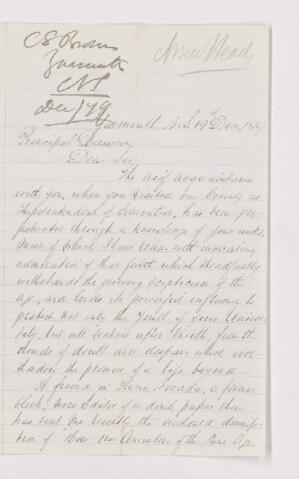 C E Brown
Yarmouth
NS
Dec 19/79
Yarmouth N.S. 19th Dec, 18
Principal Dawson,
Dear Sir,
The brief acquaintance
with you, when you visited our County as
Superintendent of Education, has been per-
petuated through a knowledge of your works,
most of which I have read with increasing
admiration of that faith which steadfastly
withstands the growing scepticism of the
age, and lends its powerful influence to
protect not only the Youth of your Univer-
sity, but all seekers after truth, from the
clouds of doubt and despair which over-
shadow the promise of a life beyond—
A friend in Nevada, a former
clerk, now Editor of a daily paper there
has sent me recently the enclosed descrip-
tion of "How our Ancestors of the Stone Age